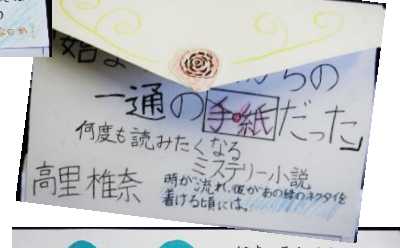 始ま
らの
一通の手紙だった」
何度も読みたくなる
ミステリー小説
高里椎奈
時が流れ、彼があの緑のネクタイを
着ける頃には、